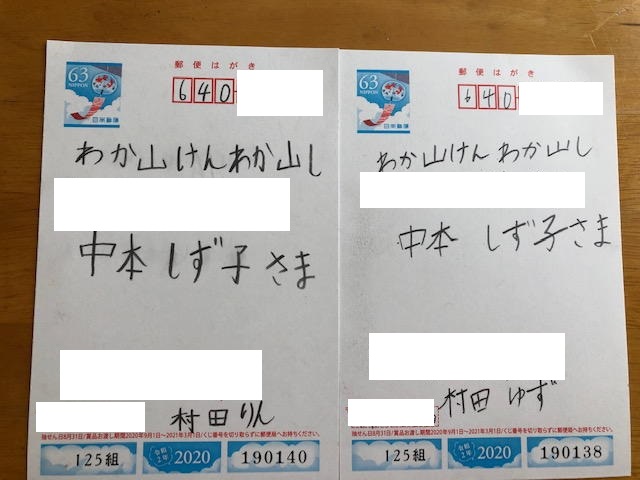 63
NIPPON
日本郵便
郵便はがき
640
わか山けんわか山し
中本しず子さま
村田りん
抽せん日8月31日/賞品お渡し期間2020年9月1日〜2021年3月1日/くじ番号を切り取らずに郵便局へお持ちください。
125組
令和2年
2020
190140
63
NIPPON
日本郵便
郵便はがき
640
わか山けんわか山し
中本 しず子さま
村田 ゆず
抽せん日8月31日/賞品お渡し期間2020年9月1日〜2021年3月1日/くじ番号を切り取らずに郵便局へお持ちください。
125組
令和2年
2020
190138